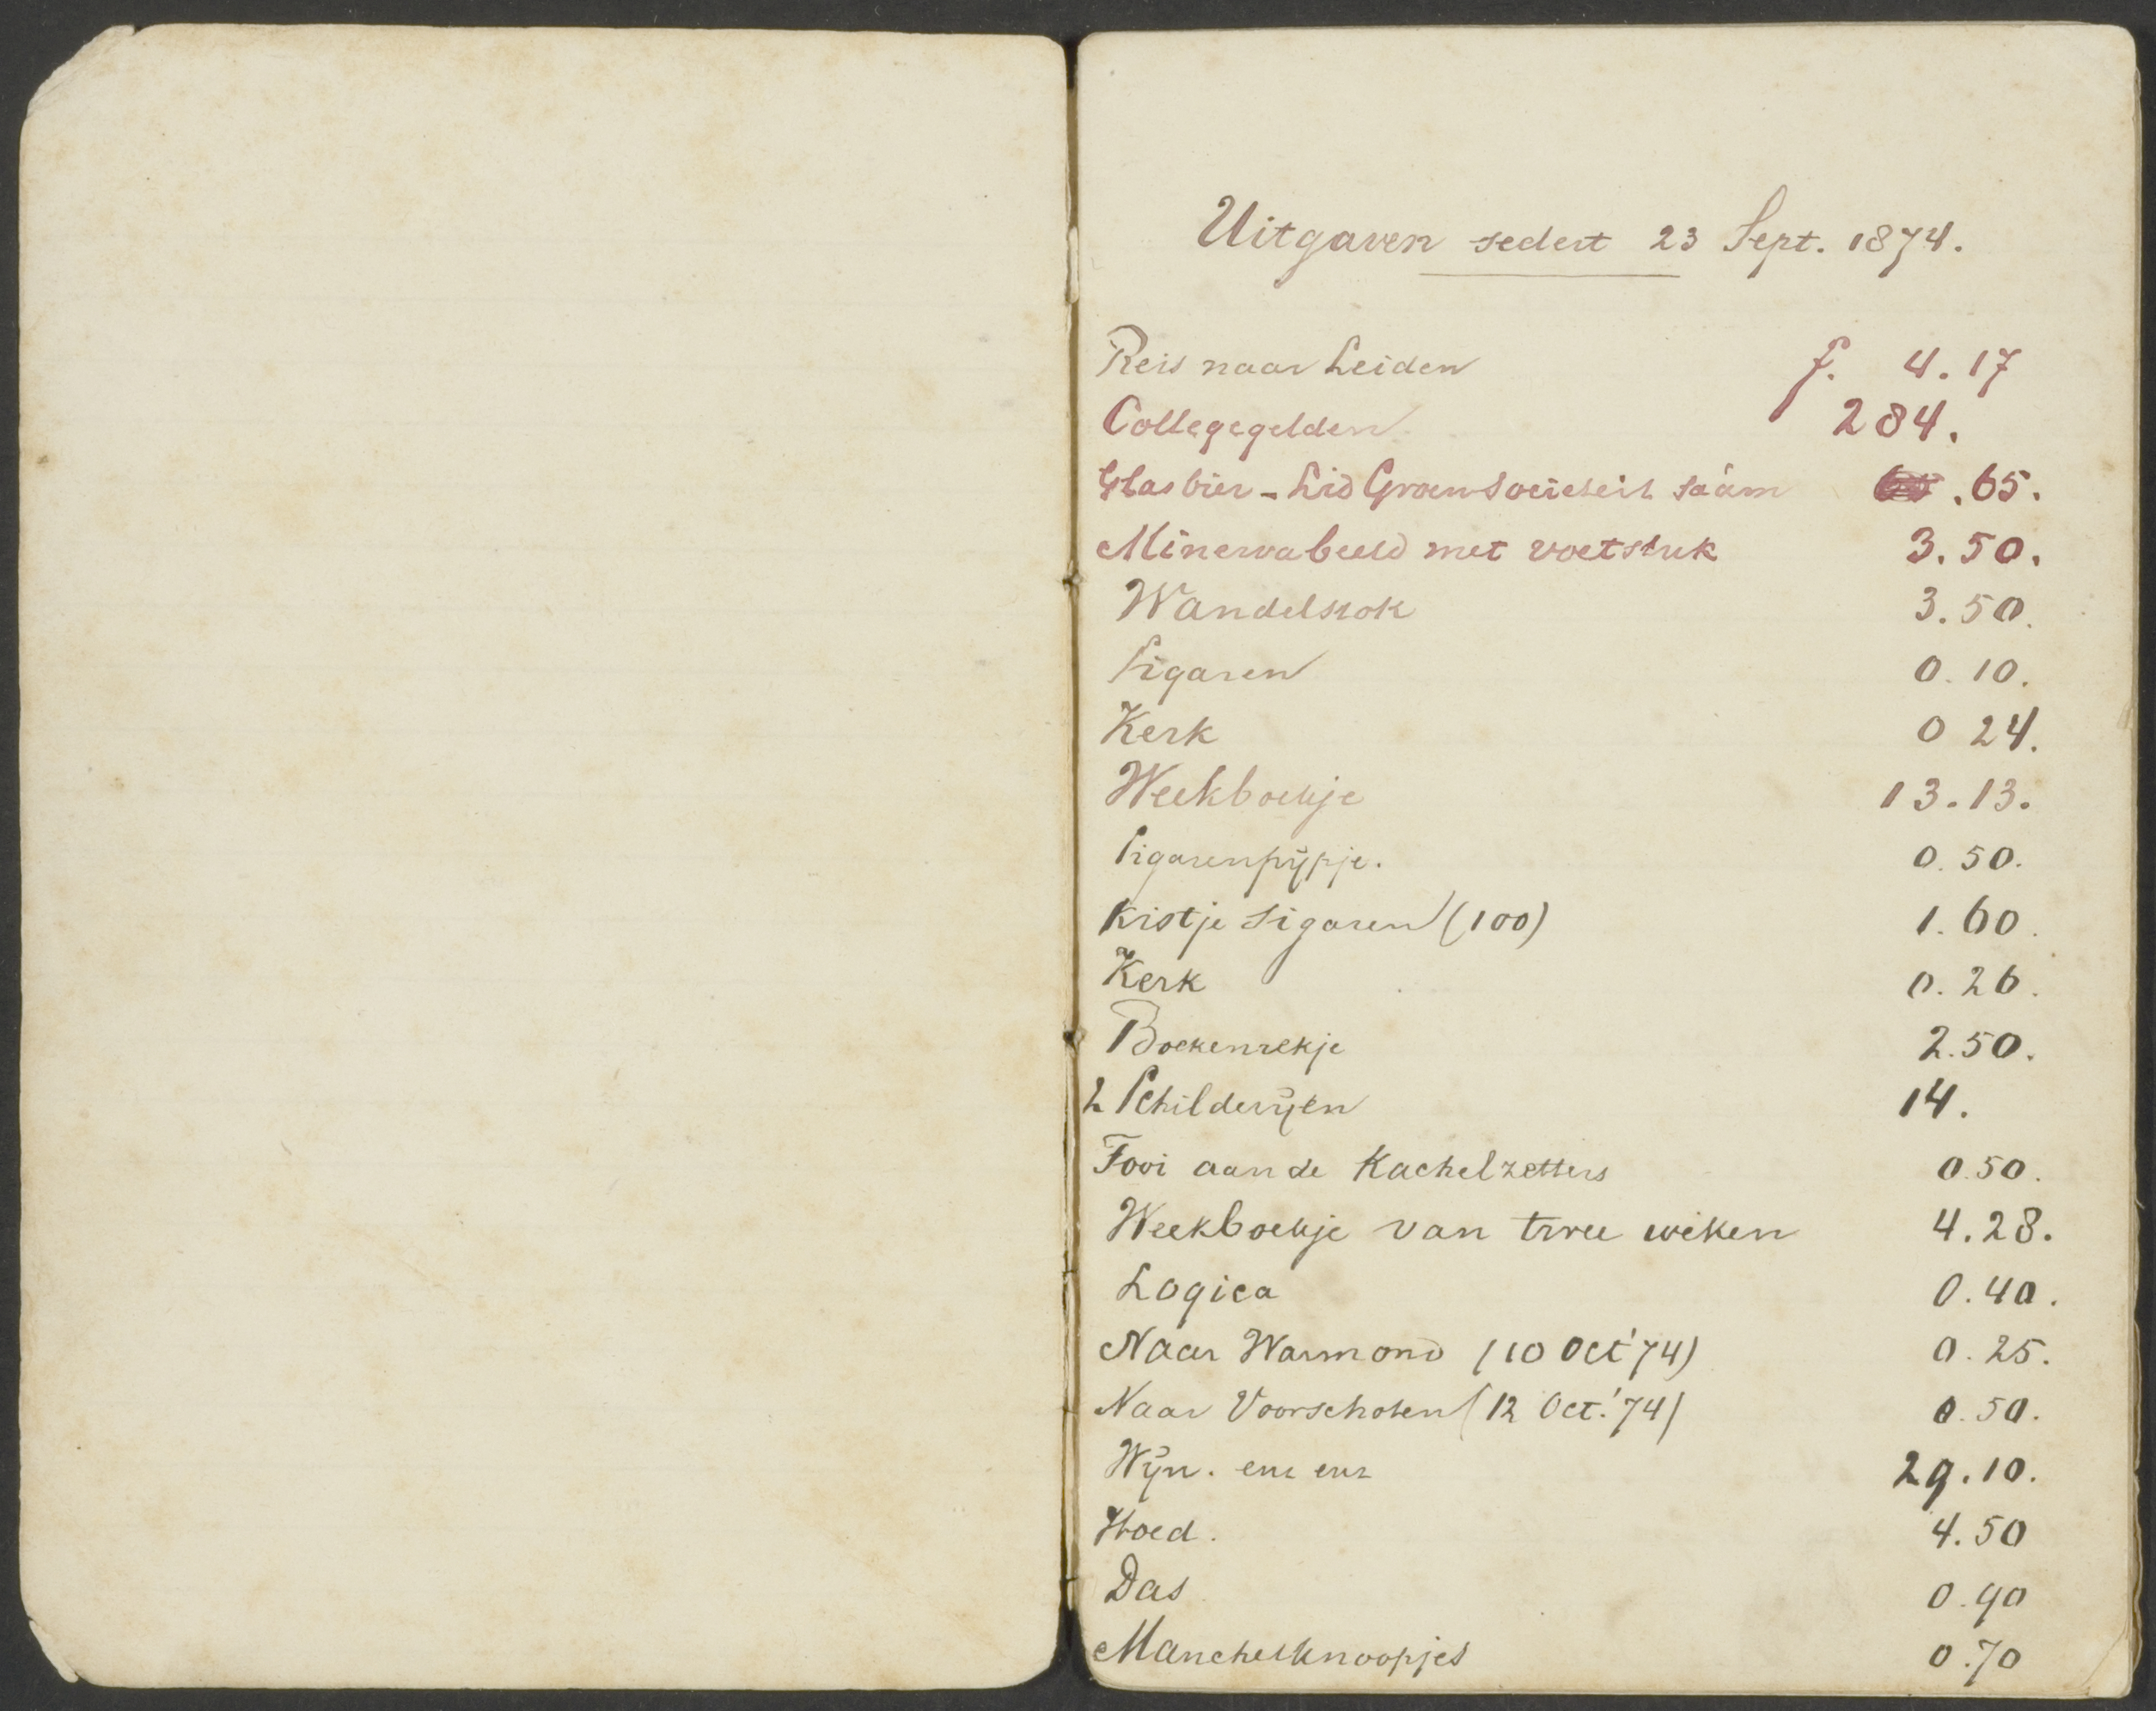 Uitgaven sedert 23 Sept. 1874.
Reis naar Leiden f. 4.17
Collegegelden 284.
Glas bier - Lid Groensocieteit sáám .65.
Minervabeeld met voetstuk 3.50.
Wandelstok 3.50.
Sigaren 0.10.
Kerk 0 24.
Weekboekje 13.13.
Sigarenpijpje. 0.50.
Kistje Sigaren (100) 1.60.
Kerk 0.26.
Boekenrekje 2.50.
2 Schilderijen 14.
Fooi aan de Kachelzetters 0.50.
Weekboekje van twee weken 4.28.
Logica 0.40.
Naar Warmond (10 Oct '74) 0.25.
Naar Voorschoten (12 Oct. '74) 0.50.
Wijn. enz enz 29.10.
Hoed. 4.50
Das 0.90
Manchetknoopjes 0.70